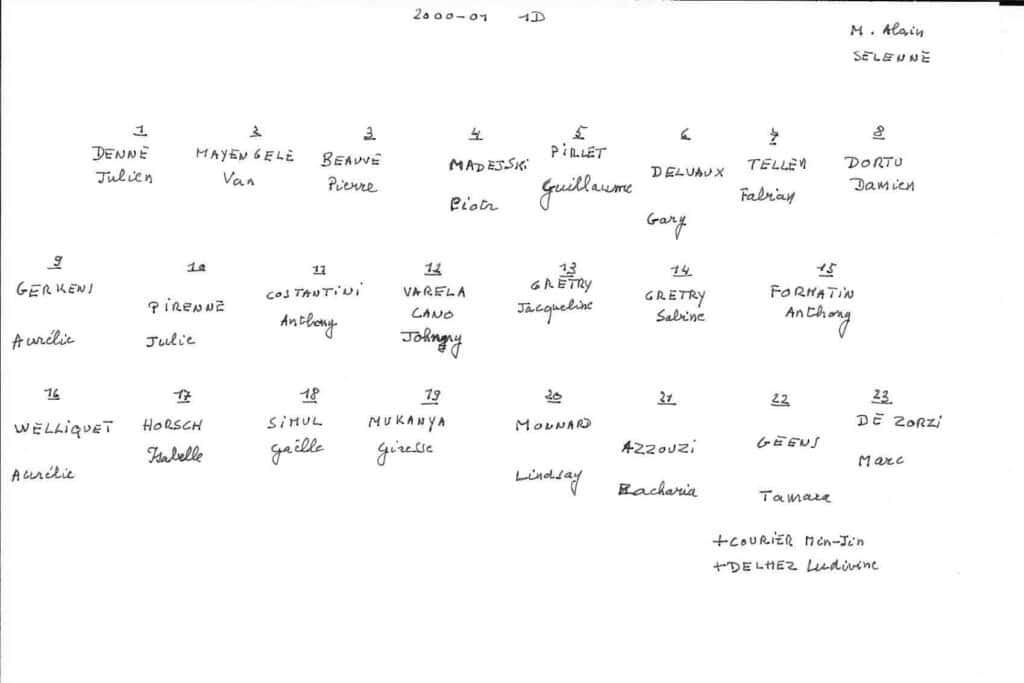 2000-01 1D
M. Alain
SELENNE
1 2 3 4 5 6 7 8
DENNE MAYENGELE BEAUVE MADEJSKI PIRLET DELVAUX TELLER DORTU
Julien Van Pierre Piotr Guillaume Gary Fabian Damien
9 10 11 12 13 14 15
GERKENS PIRENNE COSTANTINI VARELA GRETRY GRETRY FORMATIN
CANO
Aurélie Julie Anthony Johnny Jacqueline Sabine Anthony
16 17 18 19 20 21 22 23
WELLIQUET HORSCH SIMUL MUKANYA MONNARD AZZOUZI GEENS DE ZORZI
Aurélie Isabelle Gaëlle Giresse Lindsay Zacharia Tamara Marc
+COURIER Min-Jin
+DELHEZ Ludivine